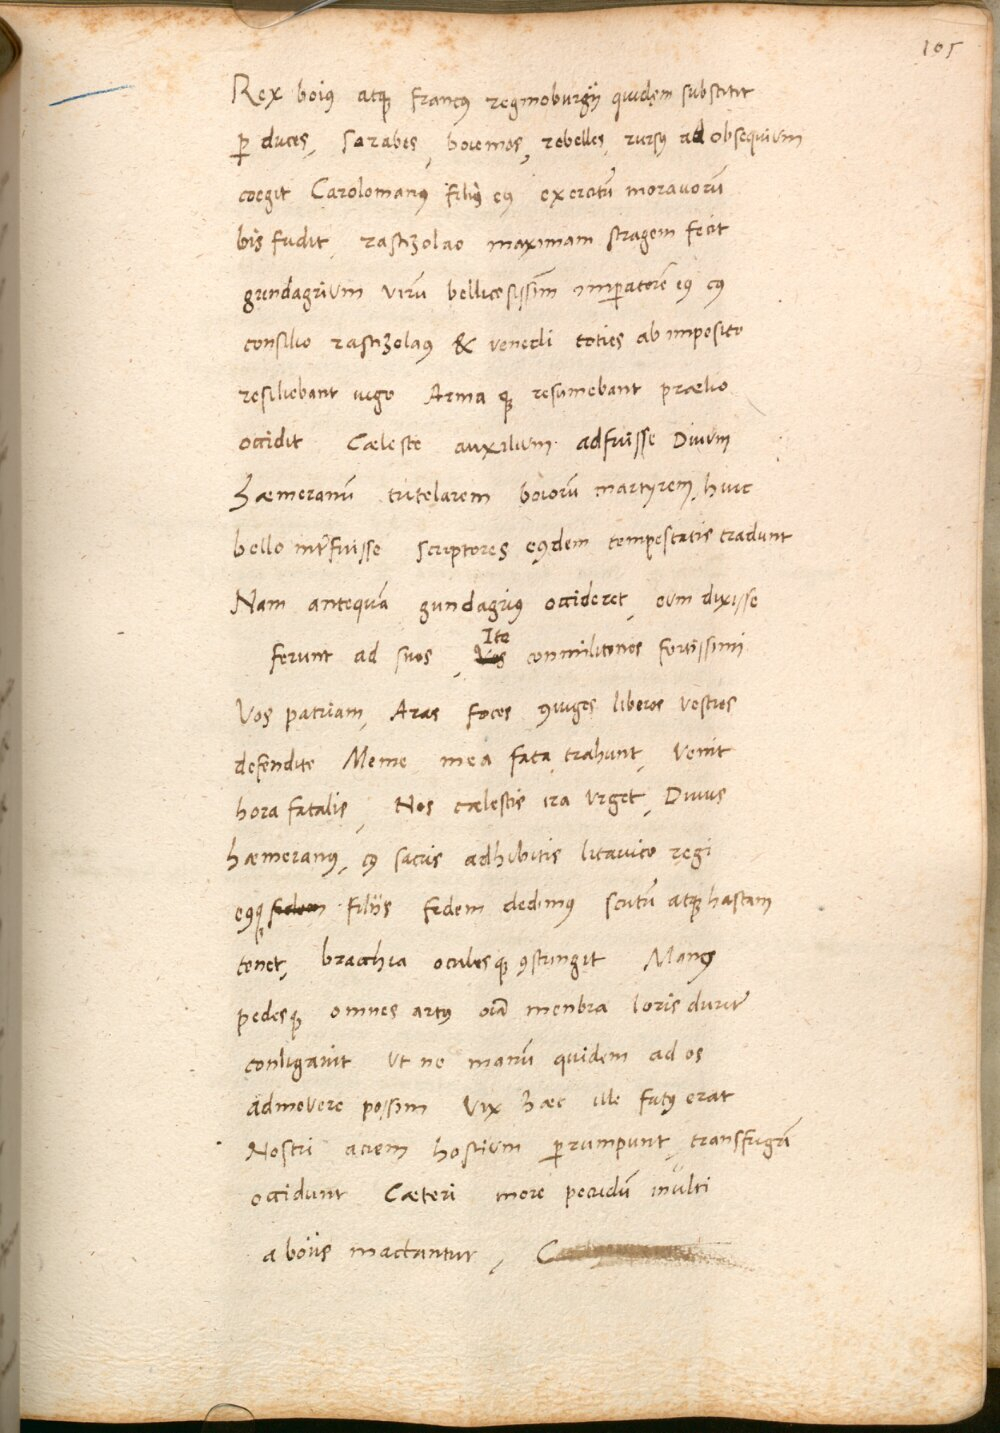 105
Rex boiꝰ atqꝫ francꝰ reginoburgij quidem substitit
ꝑ duces, sorabes, boiemos, rebelles, rursꝰ ad obsequium
coegit Carolomanꝰ filiꝰ eiꝰ exercitū morauorū
bis fudit, rastizolao maximam stragem fecit
gundagrium virū bellicosissim̄ imꝑatorē eiꝰ cꝰ
consilio rastizolaꝰ & venedi toties ab imposito
resiliebant iugo Arma qꝫ resumebant prælio
occidit Cæleste auxilium adfuisse Diuum
hæmeranū tutelarem boiorū martyrem, huic
bello int̃fuisse scriptores eiꝰdem tempestatis tradunt
Nam antequā gundagriꝰ occideret, eum dixisse
Ite
ferunt ad suos, Vos conmilitones fortissimi
Vos patriam, Aras focos ꝯiuges liberos vestros
defendite Meme mea fata trahunt, Venit
hora fatalis, Nos cælestis ira vrget, Diuus
hæmeranꝰ, cꝰ sacris adhibitis litauico regi
eiꝰqꝫ fidem filijs fidem dedimꝰ scutū atqꝫ hastam
tenet, bracchia oculosqꝫ ꝯstringit Manꝰ
pedesqꝫ omnes artꝰ oīa menbra loris durit̃
conligauit Ut ne manū quidem ad os
admouere possim Vix hæc ille fatꝰ erat
Nostri aciem hostium ꝑrumpunt, transfugā
occidunt Cæteri more pecudū inulti
a boiis mactantur, C